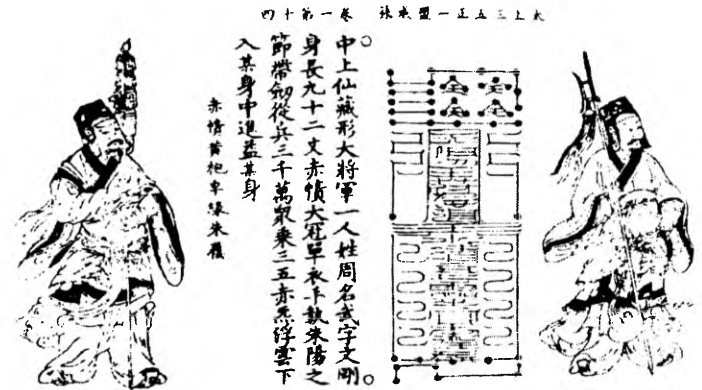 太上三五正一盟威籙 卷一第十四
中上仙藏形大將軍一人姓周名武字文剛
身長九十二丈赤幘大冠單衣執朱陽之
節帶劍從兵三千萬眾乘三五赤炁浮雲下
入某身中進益某身
赤幘黃袍皂緣朱履